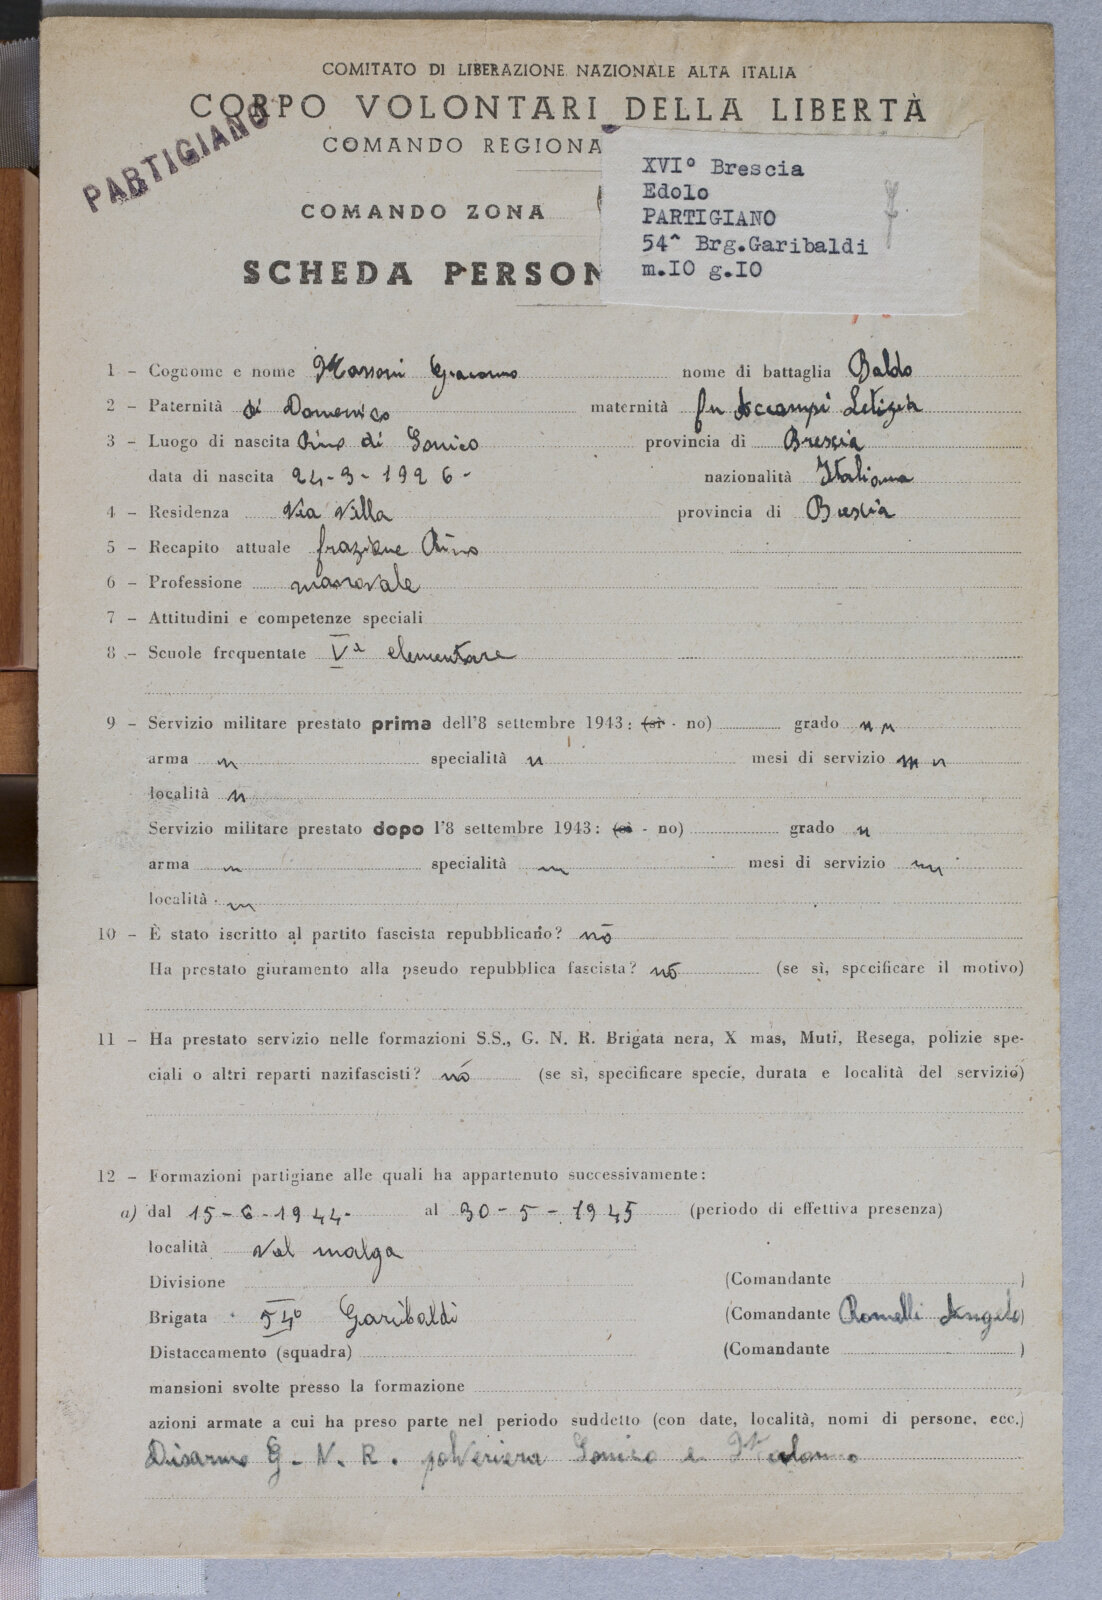 COMITATO DI LIBERAZIONE NAZIONALE ALTA ITALIA
CORPO VOLONTARI DELLA LIBERTÀ
PARTIGIANO
COMANDO REGIONA
COMANDO ZONA
SCHEDA PERSON
XVI° Brescia
Edolo
PARTIGIANO
54^ Brg.Garibaldi
m.IO g.IO
1 - Cognome e nome Massoni Giacomo nome di battaglia Baldo
2 - Paternità di Domenico maternità fu Accampi Letizia
3 - Luogo di nascita Rino di Sonico provincia di Brescia
data di nascita 24-3-1926- nazionalità Italiana
4 - Residenza Via Villa provincia di Brescia
5 - Recapito attuale frazione Rino
6 - Professione manovale
7 - Attitudini e competenze speciali
8 - Scuole frequentate Vª elementare
9 - Servizio militare prestato prima dell'8 settembre 1943: (sì - no) grado n n
arma n specialità n mesi di servizio m n
località n
Servizio militare prestato dopo l'8 settembre 1943: (sì - no) grado n
arma specialità mesi di servizio
località
10 - È stato iscritto al partito fascista repubblicano? nō
Ha prestato giuramento alla pseudo repubblica fascista? nō (se sì, specificare il motivo)
11 - Ha prestato servizio nelle formazioni S.S., G. N. R. Brigata nera, X mas, Muti, Resega, polizie spe-
ciali o altri reparti nazifascisti? nó (se sì, specificare specie, durata e località del servizio)
12 - Formazioni partigiane alle quali ha appartenuto successivamente:
a) dal 15-6-1944- al 30-5-1945 (periodo di effettiva presenza)
località Val malga
Divisione (Comandante )
Brigata 54° Garibaldi (Comandante Romelli Angelo)
Distaccamento (squadra) (Comandante )
mansioni svolte presso la formazione
azioni armate a cui ha preso parte nel periodo suddetto (con date, località, nomi di persone, ecc.)
Disarmo G.N.R. polveriera Sonico e